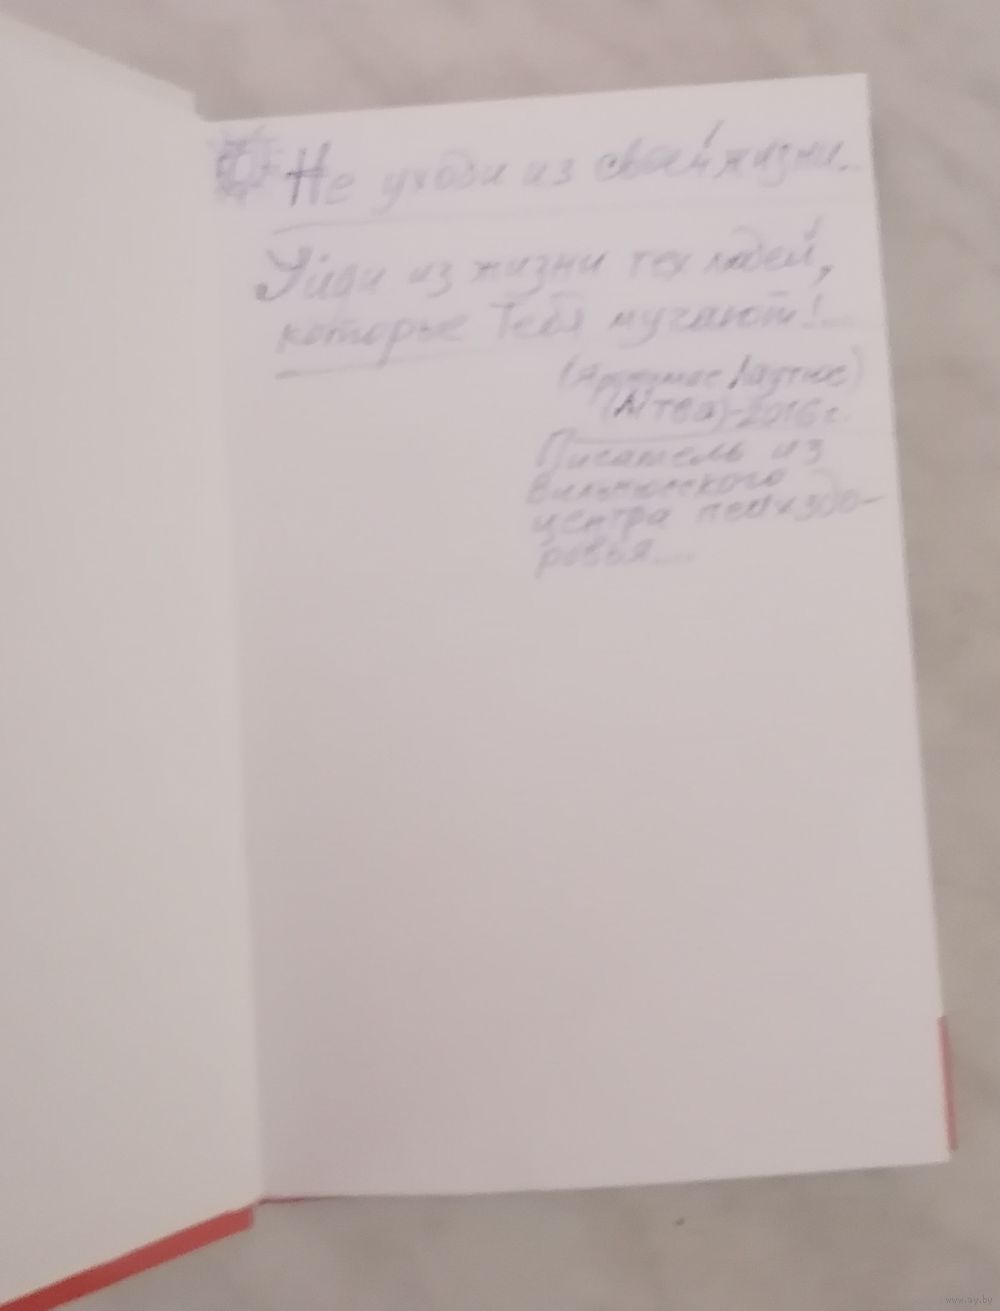 Не уходи из своей жизни...
Уйди из жизни тех людей,
которые Тебя мучают!...
(Литва)-2016 г.
Писатель из
Вильнюсского
центра псих здо-
ровья....
www.ay.by